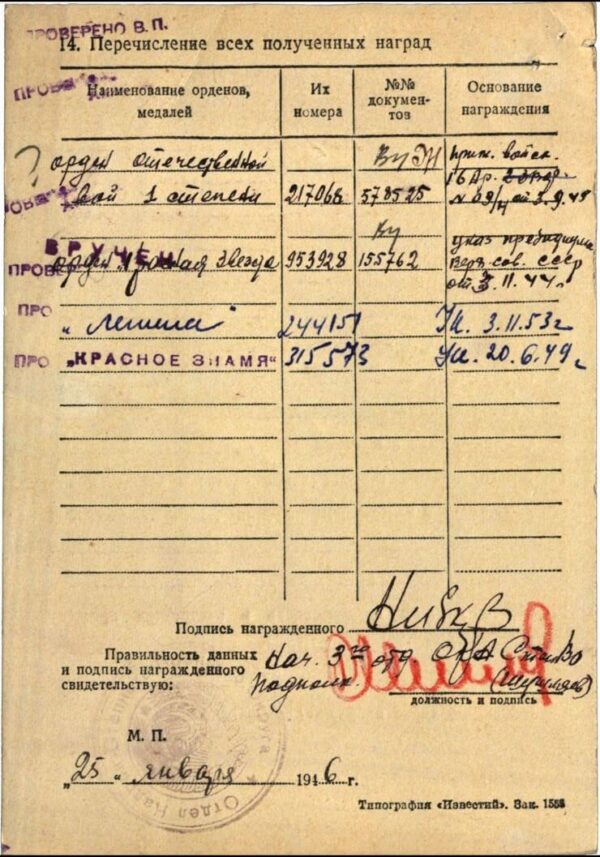 ПРОВЕРЕНО В. П.
14. Перечисление всех полученных наград
Наименование орденов, медалей
Их номера
№№ документов
Основание награждения
? орден отечественной Ву
вой 1 степени 217068 578525
ВРУЧЕН Ву указ президиума
орден красная звезда 953928 155762 Верх. сов. СССР
от 3.11.44г.
ПРО
„Ленина" 244151 Ук. 3.11.53г
ПРО „КРАСНОЕ ЗНАМЯ" 315573 Ук. 20.6.49г
Подпись награжденного
Правильность данных
и подпись награжденного
свидетельствую:
Нач. 3го отд
подполк.
должность и подпись
М. П.
„25" января 1946 г.
Типография «Известий». Зак. 1558